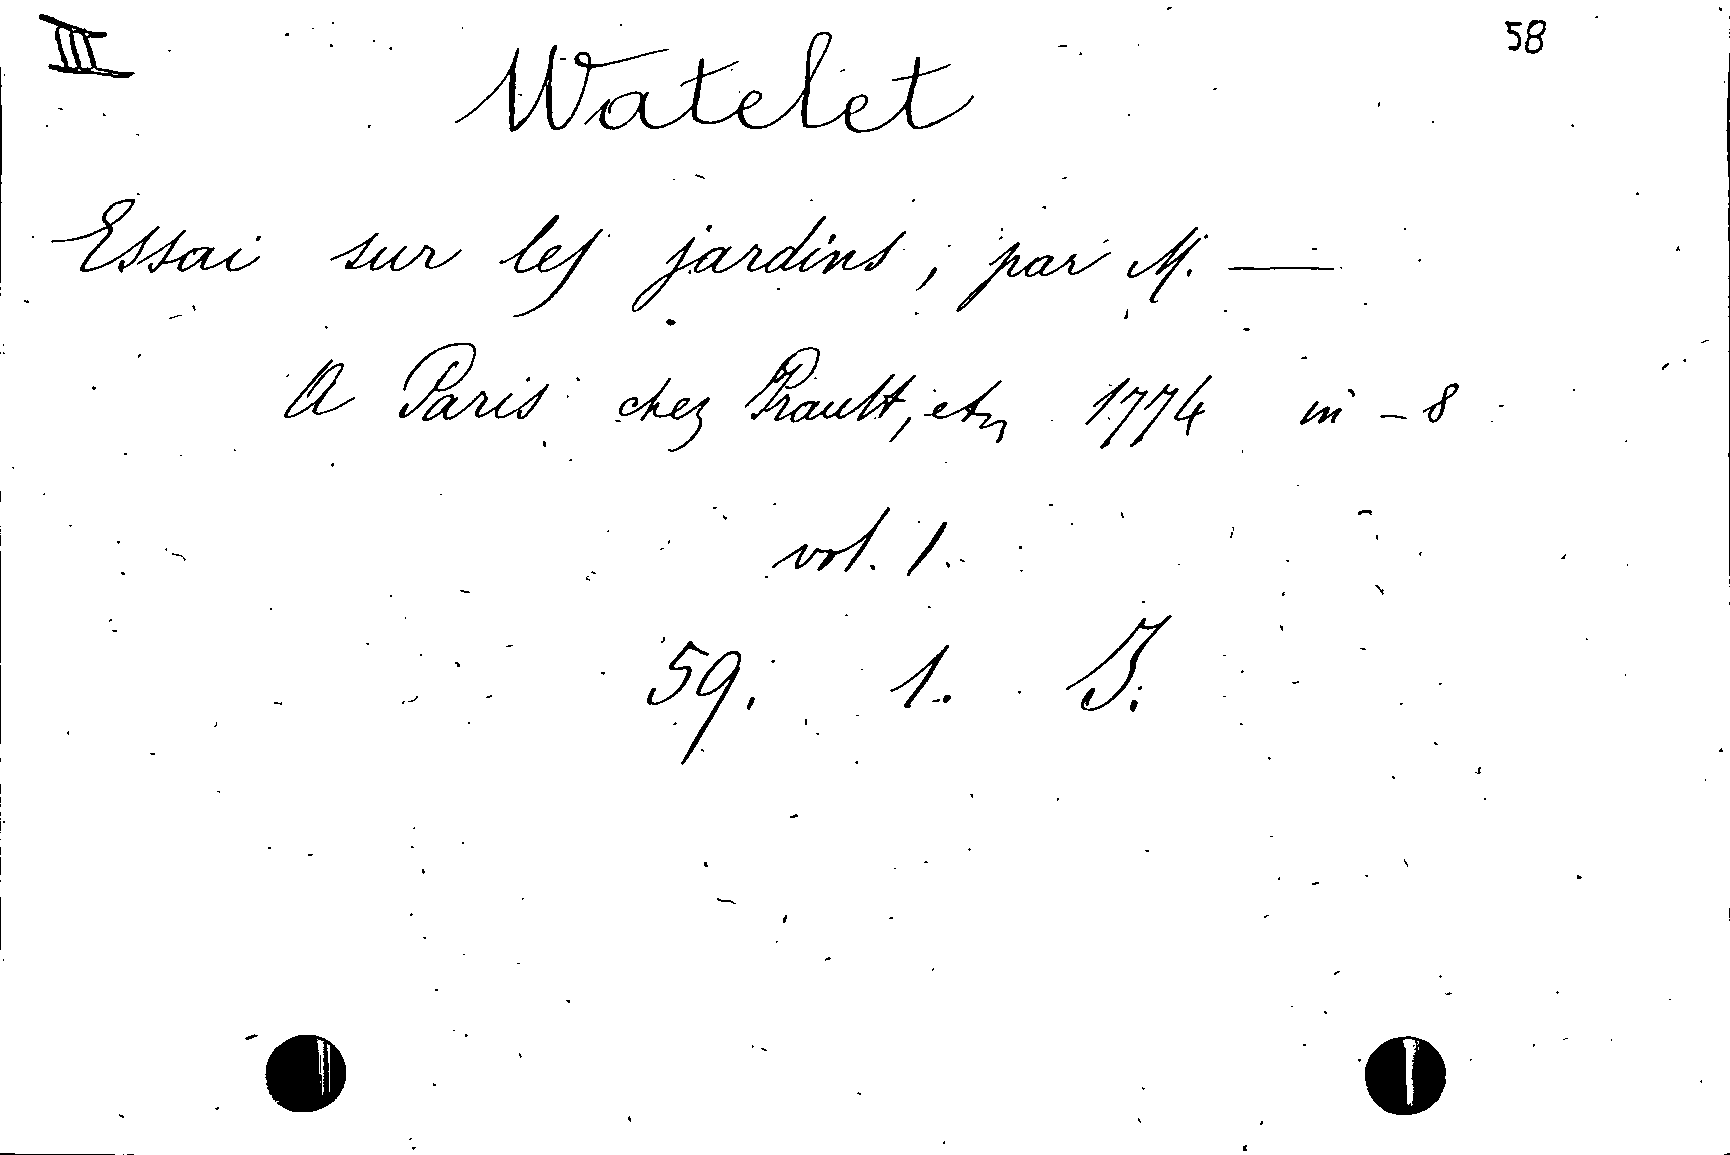 III
58
Watelet
Essai sur les jardins, par M. —
A Paris chez Prault, etc 1774 in-8
vol. 1.
59. 1. J.